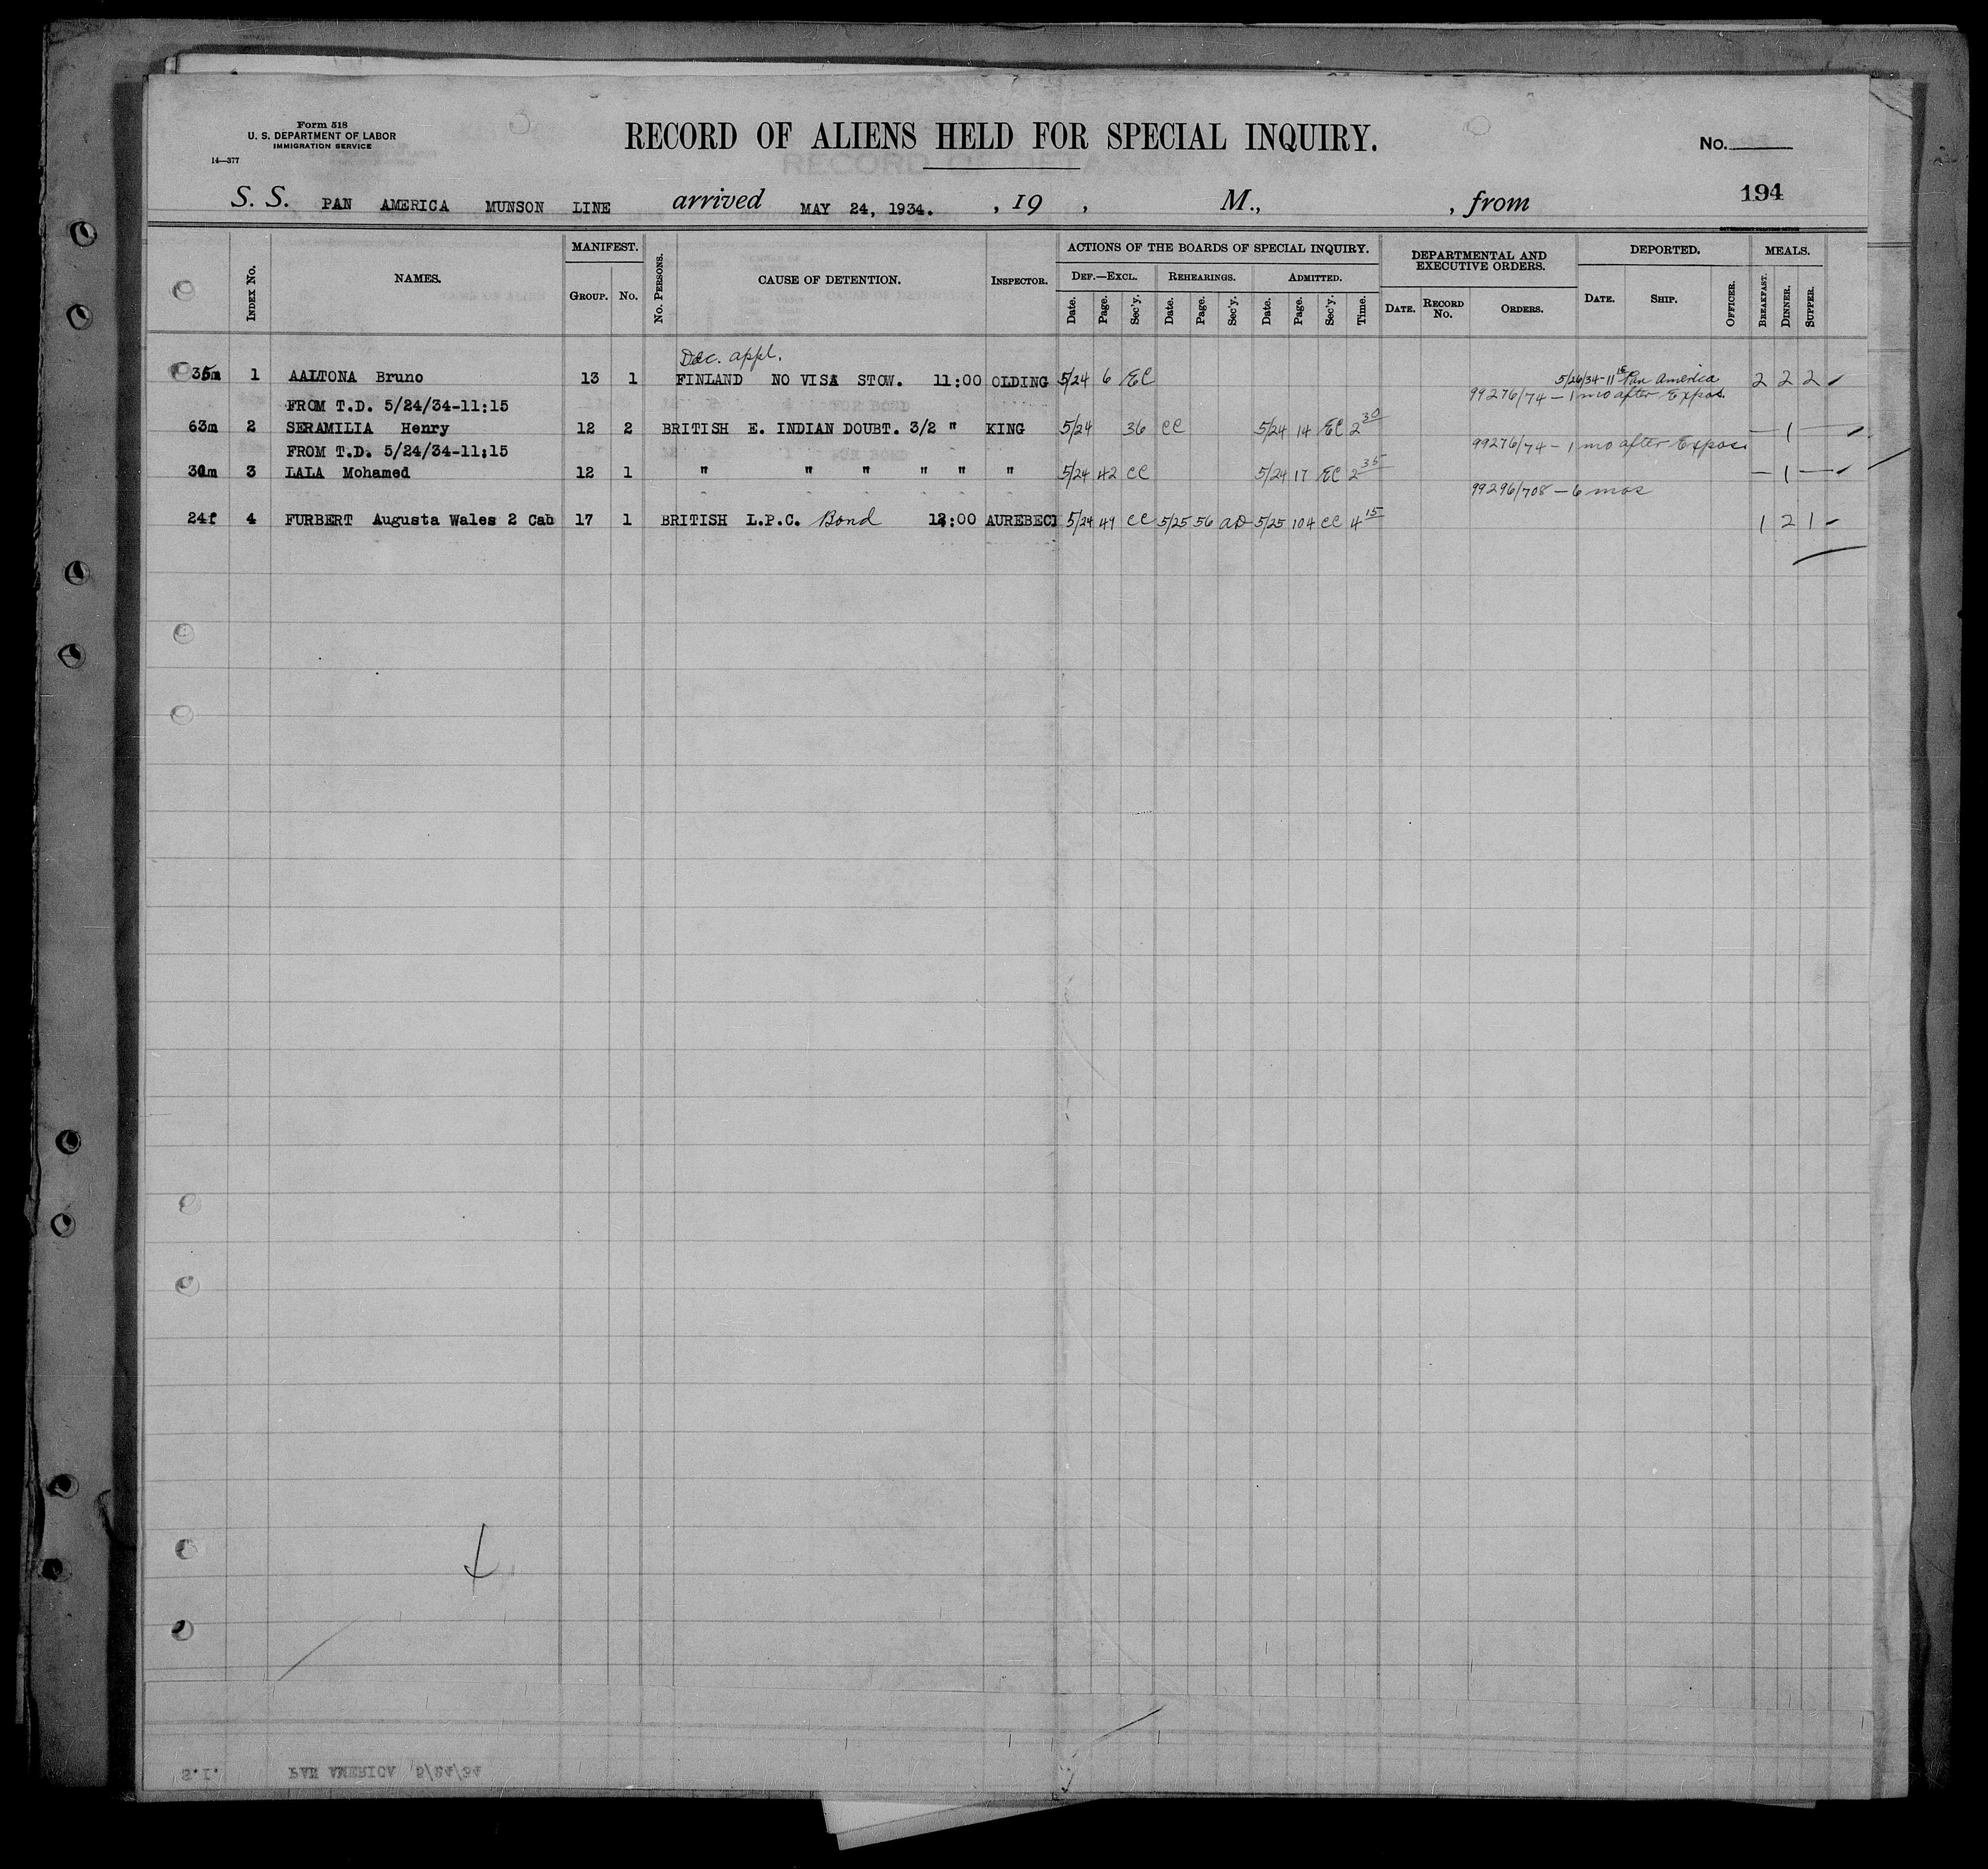 Form 518
U. S. DEPARTMENT OF LABOR
IMMIGRATION SERVICE
14—377
RECORD OF ALIENS HELD FOR SPECIAL INQUIRY.
No.
194
S. S. PAN AMERICA MUNSON LINE arrived MAY 24, 1934. , 19 , M., , from
Index No. NAMES. MANIFEST. Group. No. No. Persons. CAUSE OF DETENTION. Inspector. ACTIONS OF THE BOARDS OF SPECIAL INQUIRY. DEPARTMENTAL AND EXECUTIVE ORDERS. DEPORTED. MEALS.
Def.—Excl. Rehearings. Admitted.
Date. Page. Sec'y. Date. Page. Sec'y. Date. Page. Sec'y. Time. Date. Record No. Orders. Date. Ship. Officer. Breakfast. Dinner. Supper.
Dec. appl.
35m 1 AALTONA Bruno 13 1 FINLAND NO VISA STOW. 11:00 OLDING 5/24 6 EC 5/26/34-11 Pan America 2 2 2
FROM T.D. 5/24/34-11:15 99276/74 - 1 mo after Expos.
63m 2 SERAMILIA Henry 12 2 BRITISH E. INDIAN DOUBT. 3/2 " KING 5/24 36 CC 5/24 14 EC 2 30 — 1 —
FROM T.D. 5/24/34-11:15 99276/74 - 1 mo after Expos.
30m 3 LALA Mohamed 12 1 " " " " " " 5/24 42 CC 5/24 17 EC 2 35 — 1 —
99296/708 - 6 mos
24f 4 FURBERT Augusta Wales 2 Cab 17 1 BRITISH L.P.C. Bond 12:00 AUREBECK 5/24 49 CC 5/25 56 AD 5/25 104 CC 4 15 1 2 1
S.I. PAN AMERICA 5/24/34